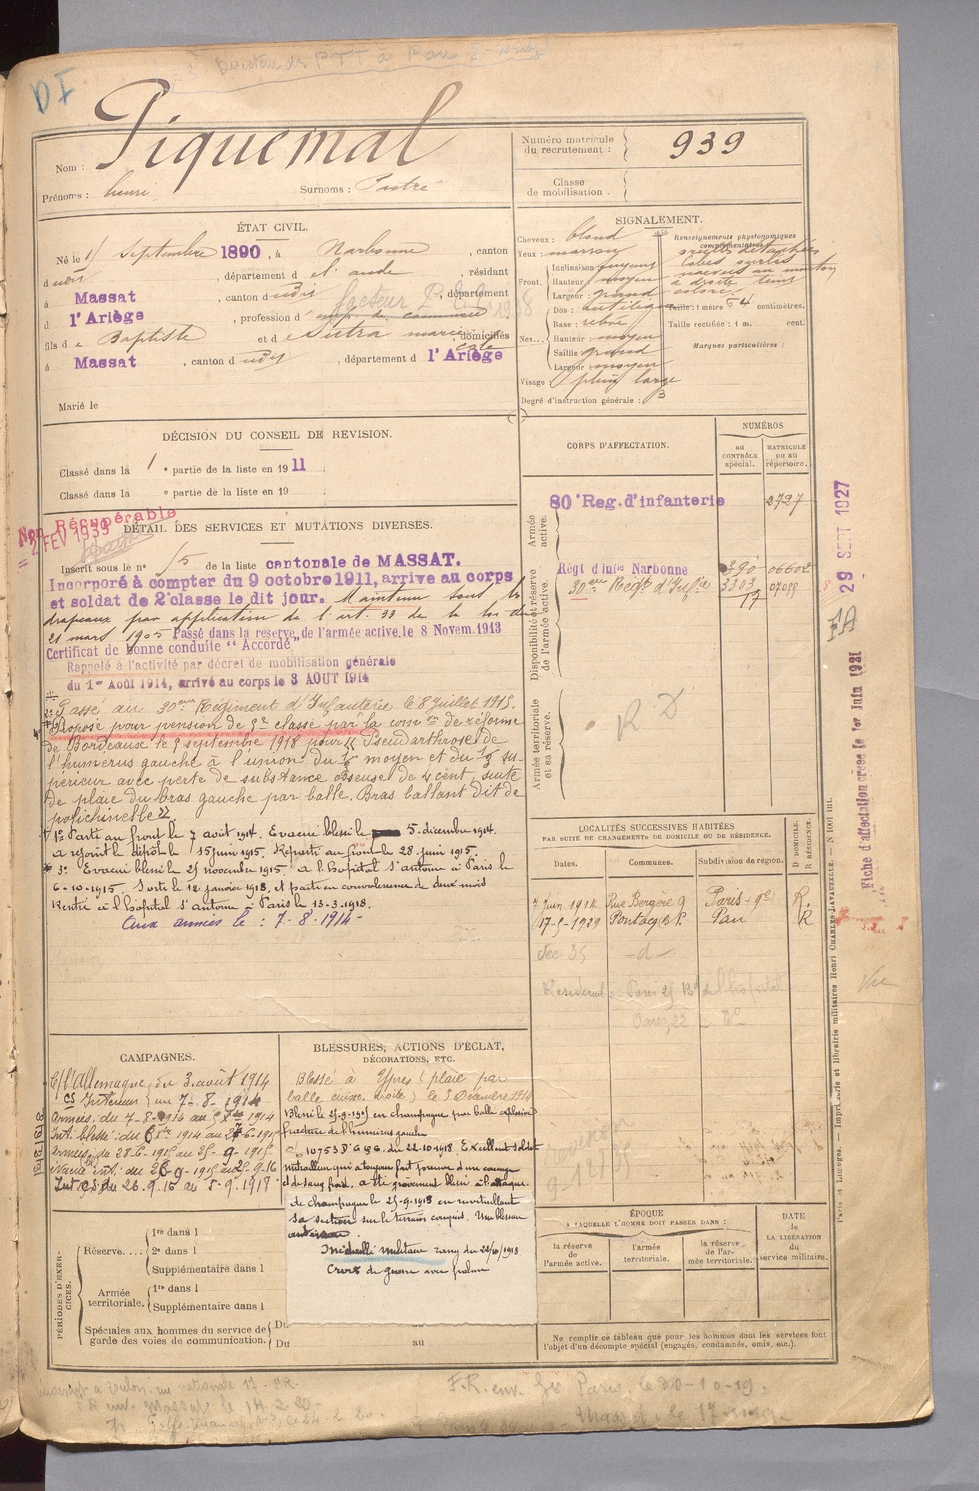 DI
Directeur des PTT à Pau
Nom : Piquemal
Prénoms : henri Surnoms :
Numéro matricule du recrutement : 939
Classe de mobilisation.
ÉTAT CIVIL.
Né le 1 Septembre 1890, à Narbonne, canton
dudit, département d e l'aude, résidant
à Massat, canton dudit, département
d l'Ariège, profession d emp. de commerce
facteur
fils d e Baptiste et d e Sutra marie, domiciliés
à Massat, canton d udit, département d l'Ariège
Marié le
SIGNALEMENT.
Cheveux : blond
Yeux : marron
Front. Inclinaison moyens
Hauteur : moyen
Largeur : grand
Nez... Dos :
Base :
Hauteur : moyen
Saillie grand
Largeur moyen
Visage : plein large
Degré d'instruction générale : 3
Renseignements physionomiques complémentaires :
à droite teint
coloré
Taille : 1 mètre 64 centimètres.
Taille rectifiée : 1 m. cent.
Marques particulières :
DÉCISION DU CONSEIL DE REVISION.
Classé dans la 1 e partie de la liste en 1911
Classé dans la e partie de la liste en 19
Non Récupérable
2 FEV 1939
DÉTAIL DES SERVICES ET MUTATIONS DIVERSES.
Inscrit sous le n° 15 de la liste cantonale de MASSAT.
Incorporé à compter du 9 octobre 1911, arrivé au corps
et soldat de 2e classe le dit jour. Maintenu sous les
drapeaux par application de l'art. 33 de la loi du
21 mars 1905 Passé dans la réserve de l'armée active, le 8 Novem. 1913
Certificat de bonne conduite "Accordé"
Rappelé à l'activité par décret de mobilisation générale
du 1er Août 1914, arrivé au corps le 3 AOUT 1914
Passé au 30eme Régiment d'Infanterie le 8 Juillet 1915.
Proposé pour pension de 3e classe par la comon de réforme
de Bordeaux le 5 septembre 1918 pour "Pseudarthrose de
l'humerus gauche à l'union du 1/3 moyen et du 1/3 su-
périeur avec perte de substance osseuse de 4 cent, suite
de plaie du bras gauche par balle. Bras ballant dit de
polichinelle"
1° Parti au front le 7 août 1914. Evacué blessé le 5 décembre 1914.
a rejoint le dépôt le 15 juin 1915. Reparti au front le 28 juin 1915.
3° Evacué blessé le 25 novembre 1915 à l'hopital St antoine à Paris le
6-10-1915. Sorti le 12 janvier 1918, et parti en convalescence de deux mois
Rentré à l'hopital St antoine à Paris le 13-3-1918.
Aux armées le : 7-8-1914-
CORPS D'AFFECTATION.
NUMÉROS
AU CONTRÔLE spécial.
MATRICULE ou au répertoire.
Armée active.
80e Reg. d'infanterie 2727
Disponibilité et réserve de l'armée active.
Régt d'infie Narbonne 390 06602
30eme Régt d'Infie 3303
Armée territoriale et sa réserve.
R D
29 SEPT 1927
FA
Fiche d'affectation créée le 1er Juin 1921
LOCALITÉS SUCCESSIVES HABITÉES
PAR SUITE DE CHANGEMENTS DE DOMICILE OU DE RÉSIDENCE.
Dates. Communes. Subdivision de région. D DOMICILE. R RÉSIDENCE.
7 Juin 1914 Rue Bergère 9 Paris-9e R.
17-5-1929 Pontacq B.P. Pau R
Dec 35 -d-
CAMPAGNES.
C/l'Allemagne du 3 août 1914
CS Intérieur au 7-8-1914
Armées. du 7-8-1914 au
Armées du 28-6-1915 au 25-9-1915
Int. CS du 26.9.16 au 5-9.1918
BLESSURES, ACTIONS D'ÉCLAT, DÉCORATIONS, ETC.
Blessé à Ypres (plaie par
balle cuisse droite) le 5 Décembre 1914
Blessé le 25-9-1915 en champagne par balle explosive
fracture de l'humérus gauche
O. 10753 D" GQG. du 22-10-1918. Excellent soldat
mitrailleur qui a toujours fait preuve d'un courage
et de sang froid. a été grièvement blessé à l'attaque
de champagne le 25-9-1915 en ravitaillant
sa section sur le terrain conquis. Une blessure
antérieure.
Médaille militaire rang du 22/10/1918
Croix de guerre avec palme
PÉRIODES D'EXERCICES.
Réserve....
1re dans l
2e dans l
Supplémentaire dans l
Armée territoriale.
1re dans l
Supplémentaire dans l
Spéciales aux hommes du service de garde des voies de communication.
Du au
Du au
ÉPOQUE
A LAQUELLE L'HOMME DOIT PASSER DANS :
la réserve de l'armée active.
l'armée territoriale.
la réserve de l'armée territoriale.
DATE de LA LIBÉRATION du service militaire.
Ne remplir ce tableau que pour les hommes dont les services font
l'objet d'un décompte spécial (engagés, condamnés, omis, etc.).
Paris et Limoges. — Imprimerie et librairie militaires Henri CHARLES-LAVAUZELLE.
F.R. env. Paris, le 20-10-19.
F.R. env. Massat le 14-2-20-